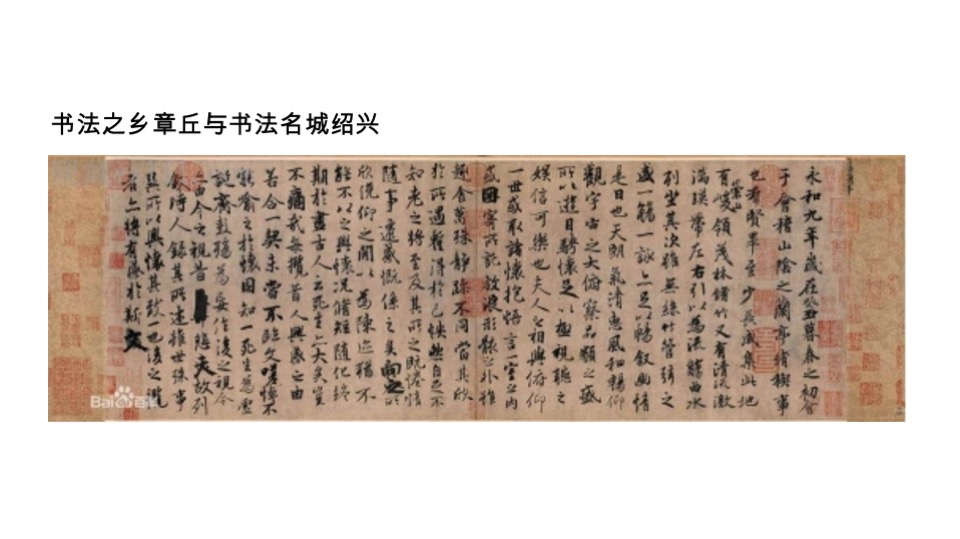 书法之乡章丘与书法名城绍兴
永和九年歲在癸丑暮春之初會
于會稽山陰之蘭亭脩稧事
也羣賢畢至少長咸集此地
有崇山峻領茂林脩竹又有清流激
湍暎帶左右引以為流觴曲水
列坐其次雖無絲竹管弦之
盛一觴一詠亦足以暢敘幽情
是日也天朗氣清惠風和暢仰
觀宇宙之大俯察品類之盛
所以遊目騁懷足以極視聽之
娛信可樂也夫人之相與俯仰
一世或取諸懷抱悟言一室之內
或因寄所託放浪形骸之外雖
趣舍萬殊靜躁不同當其欣
於所遇蹔得於己怏然自足不
知老之將至及其所之既惓情
隨事遷感慨係之矣向之所
欣俛仰之閒以為陳迹猶不
能不以之興懷況脩短隨化終
期於盡古人云死生亦大矣豈
不痛哉每攬昔人興感之由
若合一契未嘗不臨文嗟悼不
能喻之於懷固知一死生為虛
誕齊彭殤為妄作後之視今
亦由今之視昔悲夫故列
敘時人錄其所述雖世殊事
異所以興懷其致一也後之攬
者亦將有感於斯文
Bai百科